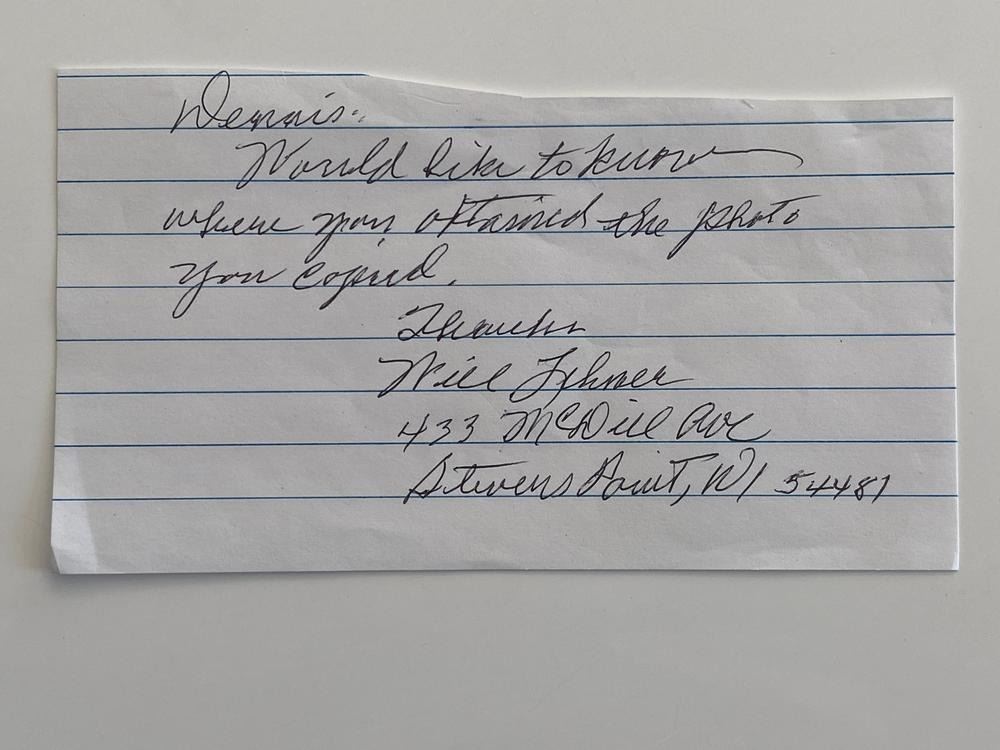 Dennis:
Would like to know
where you obtained the photo
you copied.
Thanks
Will
433 McDill Ave
Stevens Point, WI 54481